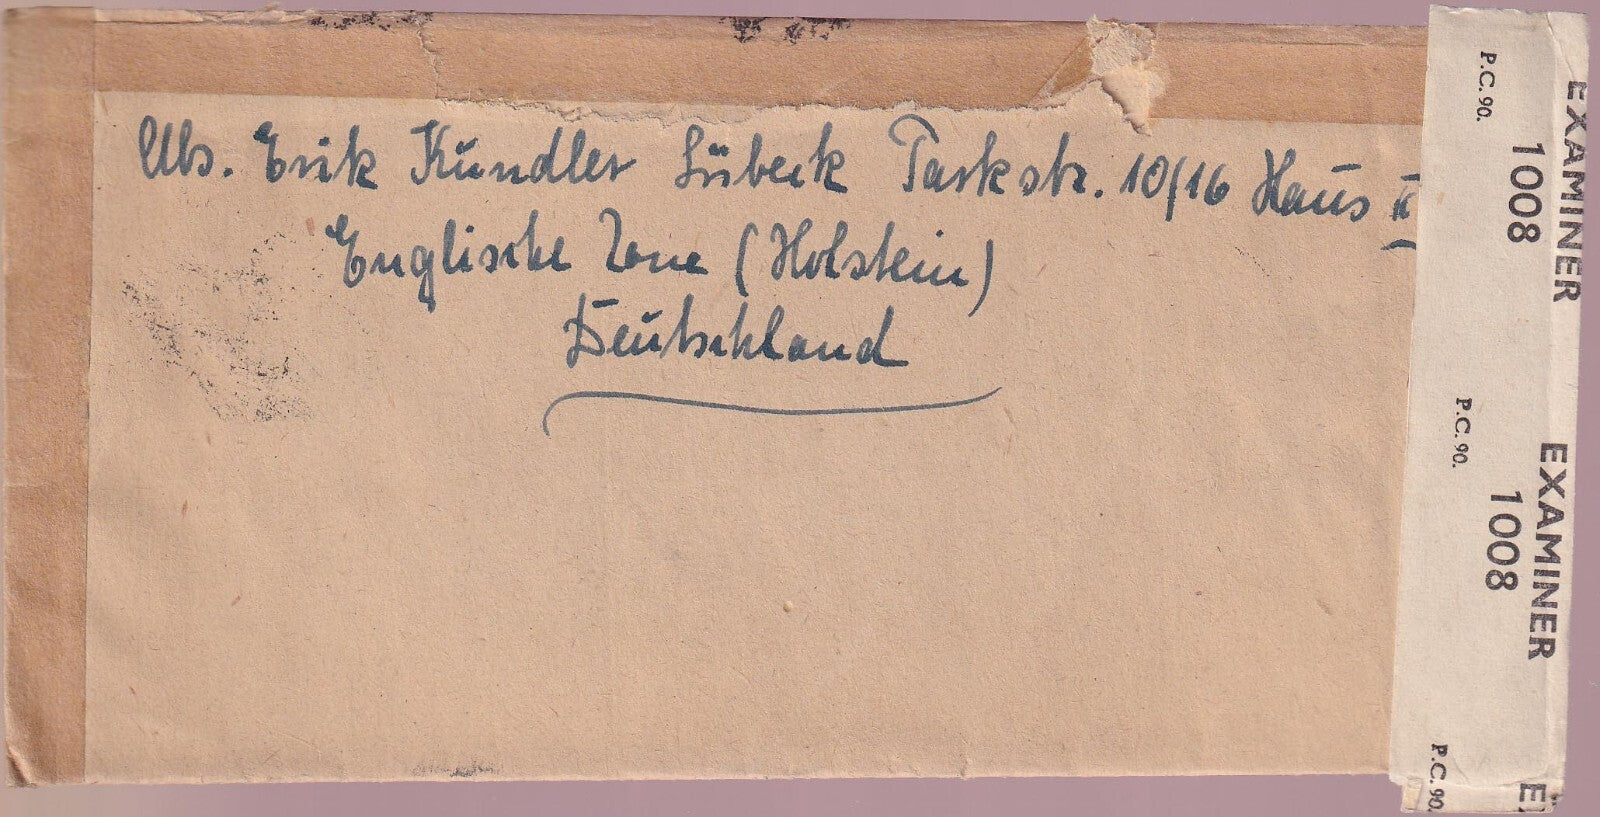 Abs. Erik Kundler Lübeck Parkstr. 10/16 Haus II
Englische Zone (Holstein)
Deutschland
P.C. 90.
EXAMINER
1008
P.C. 90.
EXAMINER
1008
P.C. 90.
E